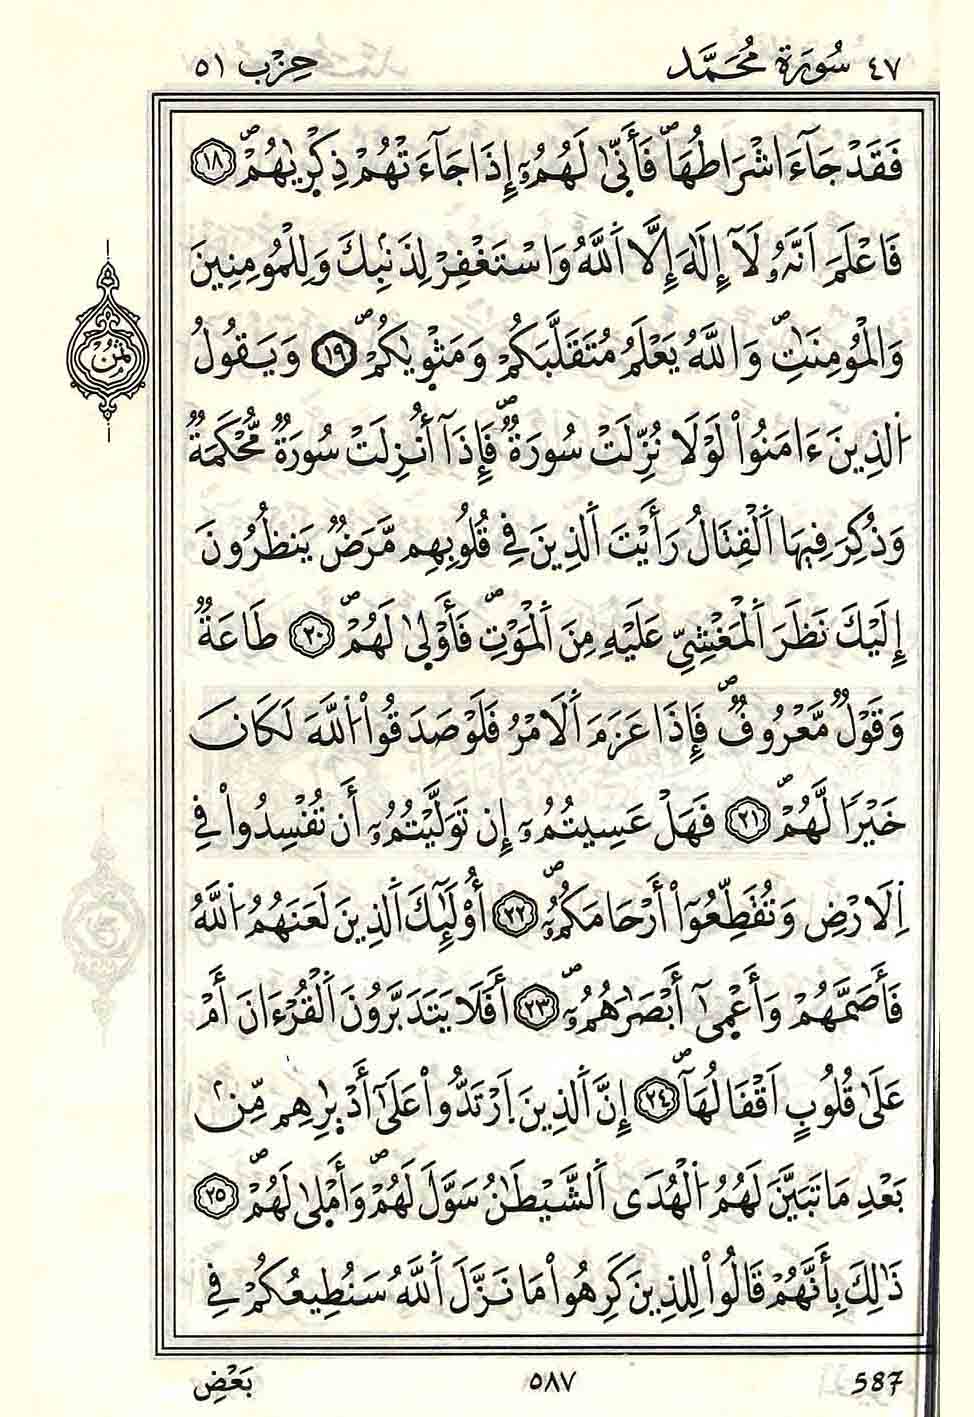 ٤٧ سُورَة مُحَمَّد حِزْب ٥١
فَقَدْ جَآءَ اشْرَاطُهَاۖ فَأَنّ۪يٰ لَهُمُۥٓ إِذَا جَآءَتْهُمْ ذِكْر۪يٰهُمْۖ ١٨
فَاعْلَمَ اَنَّهُۥ لَآ إِلَٰهَ إِلَّا اَ۬للَّهُ وَاسْتَغْفِرْ لِذَنۢبِكَ وَلِلْمُومِنِينَ
وَالْمُومِنَٰتِۖ وَاللَّهُ يَعْلَمُ مُتَقَلَّبَكُمْ وَمَثْو۪يٰكُمْۖ ١٩ وَيَقُولُ
اُ۬لذِينَ ءَامَنُواْ لَوْلَا نُزِّلَتْ سُورَةٞۖ فَإِذَآ أُنزِلَتْ سُورَةٞ مُّحْكَمَةٞ
وَذُكِرَ فِيهَا اَ۬لْقِتَالُ رَأَيْتَ اَ۬لذِينَ فِے قُلُوبِهِم مَّرَضٞ يَنظُرُونَ
إِلَيْكَ نَظَرَ اَ۬لْمَغْشِيِّ عَلَيْهِ مِنَ اَ۬لْمَوْتِۖ فَأَوْل۪يٰ لَهُمْۖ ٢٠ طَاعَةٞ
وَقَوْلٞ مَّعْرُوفٞۖ فَإِذَا عَزَمَ اَ۬لَامْرُ فَلَوْ صَدَقُواْ اُ۬للَّهَ لَكَانَ
خَيْراٗ لَّهُمْۖ ٢١ فَهَلْ عَسِيتُمُۥٓ إِن تَوَلَّيْتُمُۥٓ أَن تُفْسِدُواْ فِے
اِ۬لَارْضِ وَتُقَطِّعُوٓاْ أَرْحَامَكُمُۥٓۖ ٢٢ أُوْلَٰٓئِكَ اَ۬لذِينَ لَعَنَهُمُ اُ۬للَّهُ
فَأَصَمَّهُمْ وَأَعْم۪يٰٓ أَبْصَٰرَهُمُۥٓۖ ٢٣ أَفَلَا يَتَدَبَّرُونَ اَ۬لْقُرْءَانَ أَمْ
عَلَيٰ قُلُوبٍ اَقْفَالُهَآۖ ٢٤ إِنَّ اَ۬لذِينَ اَ۪رْتَدُّواْ عَلَيٰٓ أَدْبٰ۪رِهِم مِّنۢ
بَعْدِ مَا تَبَيَّنَ لَهُمُ اُ۬لْهُدَي اَ۬لشَّيْطَٰنُ سَوَّلَ لَهُمْۖ وَأَمْل۪يٰ لَهُمْۖ ٢٥
ذَٰلِكَ بِأَنَّهُمْ قَالُواْ لِلذِينَ كَرِهُواْ مَا نَزَّلَ اَ۬للَّهُ سَنُطِيعُكُمْ فِے
ثُمُن
587 ٥٨٧ بَعْضِ